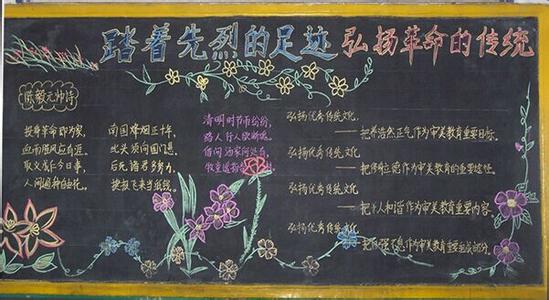 踏着先烈的足迹 弘扬革命的传统
陈毅元帅诗
投身革命即为家，
血雨腥风应有涯。
取义成仁今日事，
人间遍种自由花。
南国烽烟正十年，
此头须向国门悬。
后死诸君多努力，
捷报飞来当纸钱。
清明时节雨纷纷，
路人行人欲断魂。
借问酒家何处有，
牧童遥指
弘扬优秀传统文化
——把养浩然正气作为审美教育重要目标。
弘扬优秀传统文化
弘扬优秀传统文化
——把个人和谐作为审美教育重要内容。
弘扬优秀传统文化
——把自强不息作为审美教育重要组成部分。